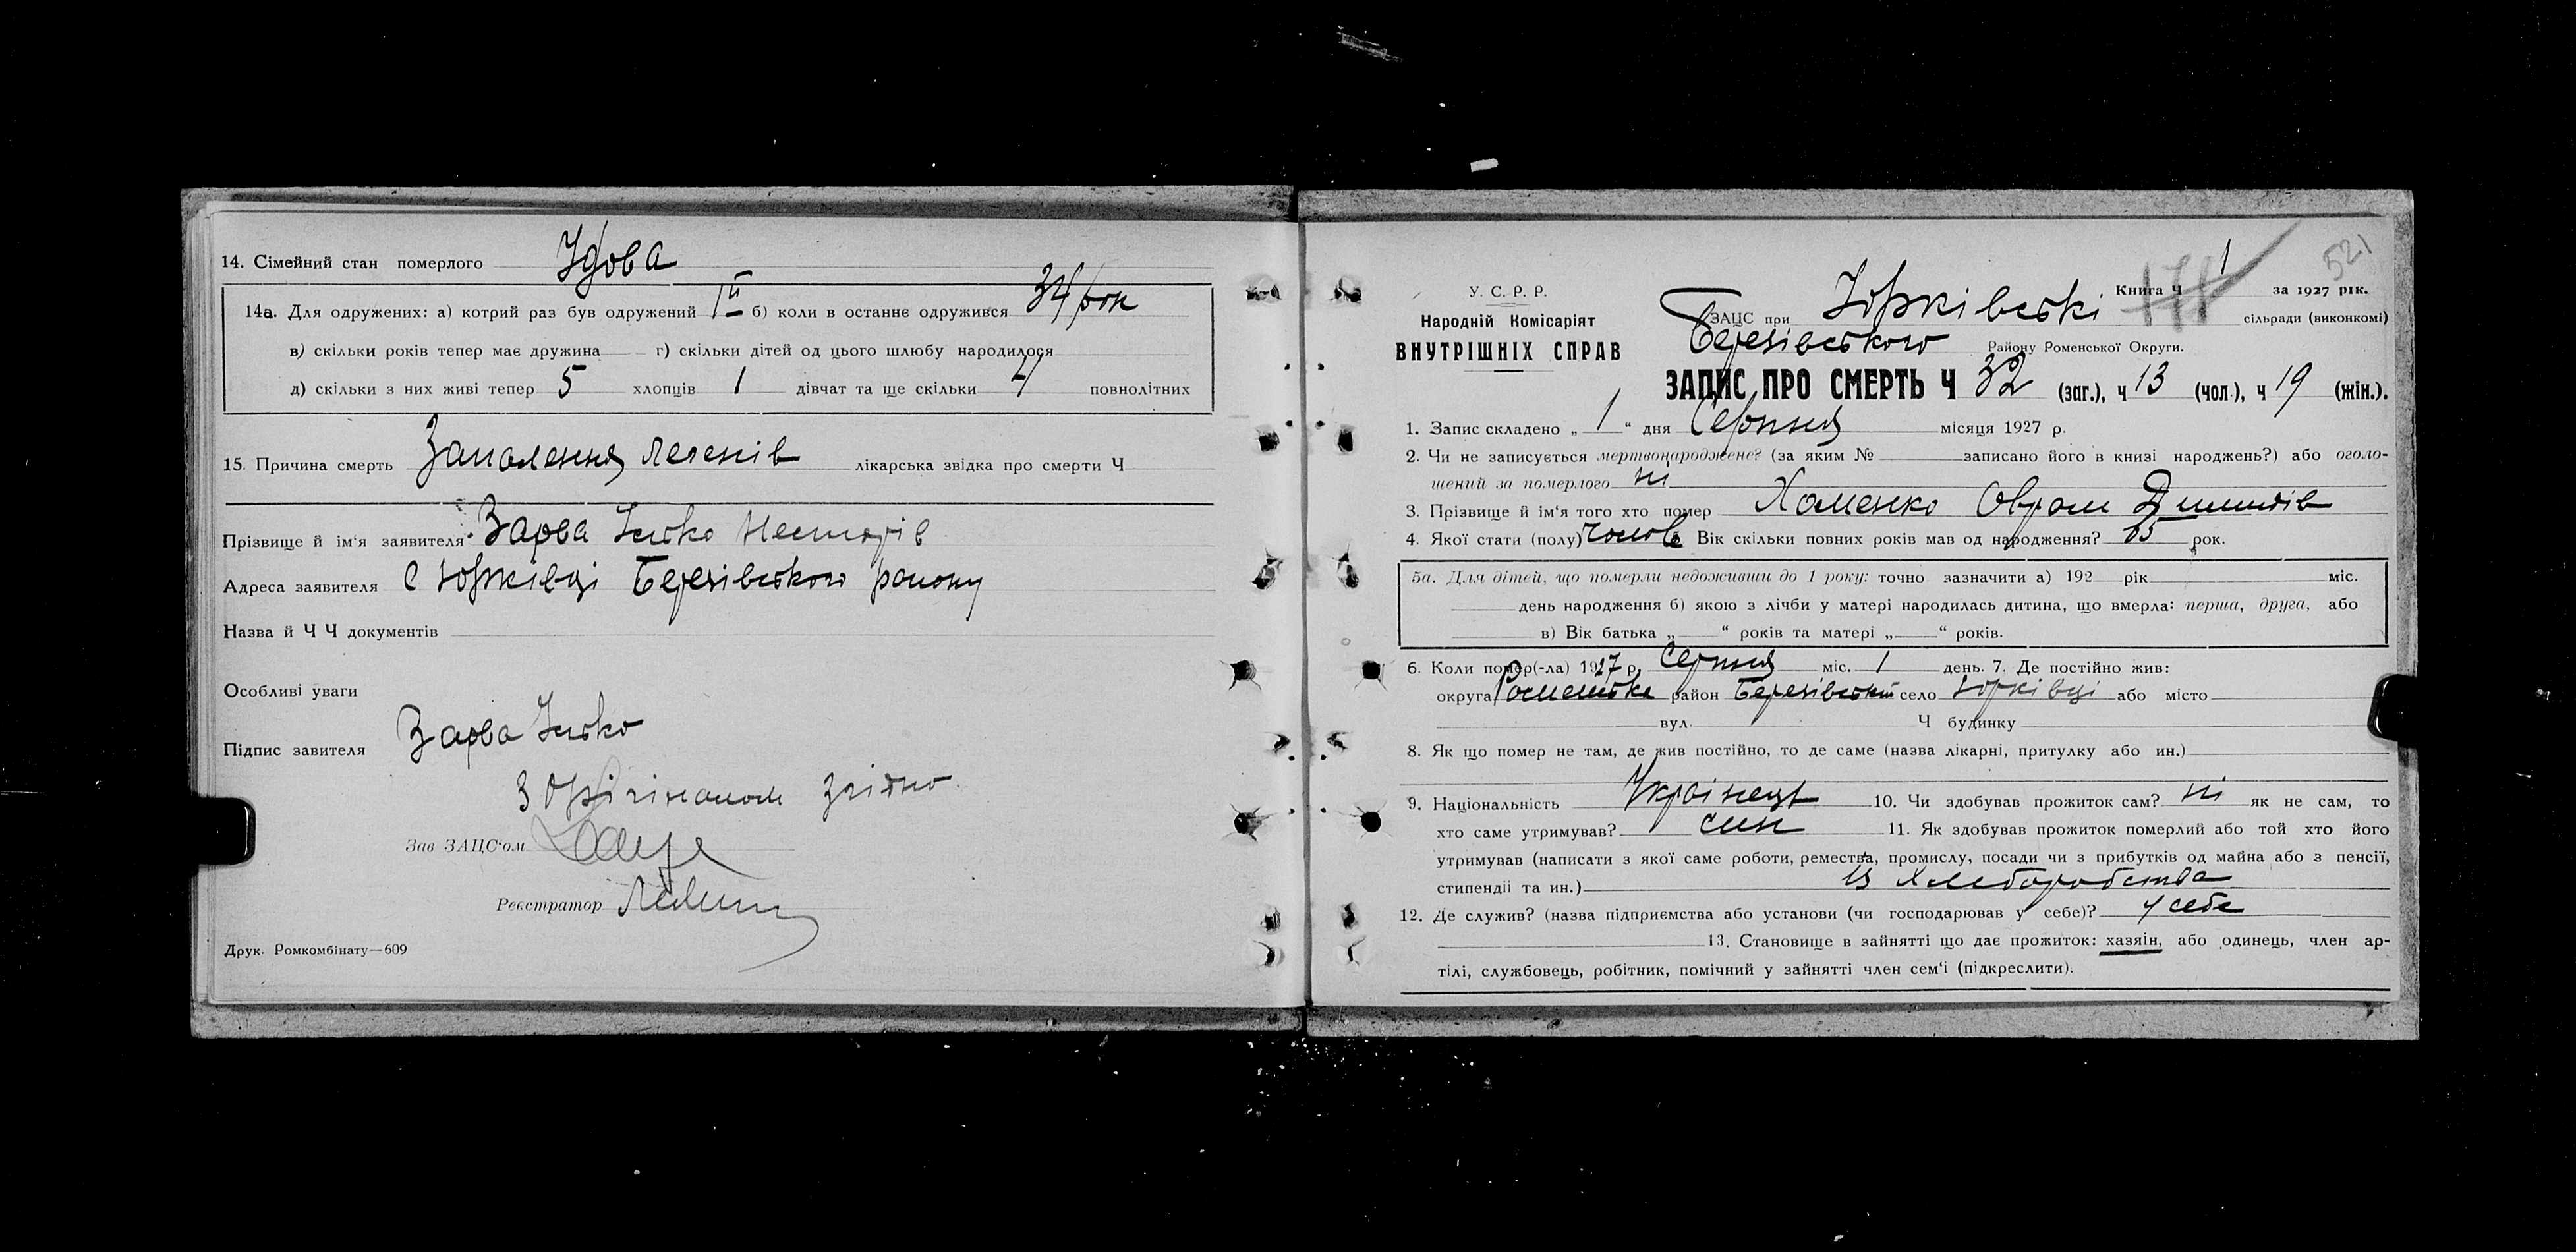 14. Сімейний стан померлого Удова
14а. Для одружених: а) котрий раз був одружений Iй б) коли в останнє одружився 34 рок
в) скільки років тепер має дружина г) скільки дітей од цього шлюбу народилося
д) скільки з них живі тепер 5 хлопців 1 дівчат та ще скільки 4 повнолітних
15. Причина смерть Запалення легенів лікарська звідка про смерти Ч
Прізвище й ім'я заявителя Зарва Їлько Несторів
Адреса заявителя с Юрківці Березівського району
Назва й Ч Ч документів
Особливі уваги
Підпис завителя Зарва Їлько
З Орігіналом згідно.
Зав ЗАЦС'ом
Реєстратор
Друк. Ромкомбінату—609
521
1
У. С. Р. Р.
Народній Комісаріят
ВНУТРІШНІХ СПРАВ
Книга Ч за 1927 рік.
ЗАЦС при Юрківські сільради (виконкомі)
Березівського Району Роменської Округи.
ЗАПИС ПРО СМЕРТЬ Ч 32 (заг.), ч 13 (чол.), ч 19 (жін.).
1. Запис складено „ 1 “ дня Серпня місяця 1927 р.
2. Чи не записується мертвонароджене? (за яким № записано його в книзі народжень?) або оголо-
шений за померлого ні
3. Прізвище й ім'я того хто помер Хоменко Оврам
4. Якої стати (полу) чолов Вік скільки повних років мав од народження? 65 рок.
5а. Для дітей, що померли недоживши до 1 року: точно зазначити а) 192 рік міс.
день народження б) якою з лічби у матері народилась дитина, що вмерла: перша, друга, або
в) Вік батька „ “ років та матері „ “ років.
6. Коли помер(-ла) 1927 р. Серпня міс. 1 день. 7. Де постійно жив:
округа Роменське район Березівський село Юрківці або місто
вул. Ч будинку
8. Як що помер не там, де жив постійно, то де саме (назва лікарні, притулку або ин.)
9. Національність Українець 10. Чи здобував прожиток сам? ні як не сам, то
хто саме утримував? син 11. Як здобував прожиток померлий або той хто його
утримував (написати з якої саме роботи, ремества, промислу, посади чи з прибутків од майна або з пенсії,
стипендії та ин.) Із Хлеборобства
12. Де служив? (назва підприємства або установи (чи господарював у себе)? у себе
13. Становище в зайнятті що дає прожиток: хазяїн, або одинець, член ар-
тілі, службовець, робітник, помічний у зайнятті член сем'ї (підкреслити).